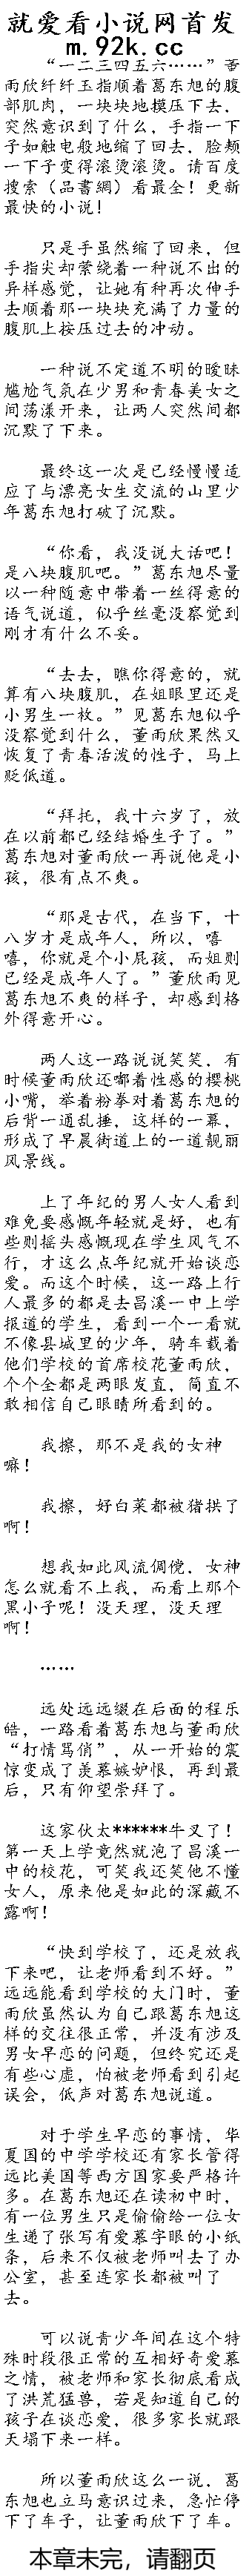 就爱看小说网首发
m.92k.cc
“一二三四五六……”董
雨欣纤纤玉指顺着葛东旭的腹
部肌肉，一块块地摸压下去，
突然意识到了什么，手指一下
子如触电般地缩了回来，脸颊
一下子变得滚烫滚烫。请百度
搜索（品書網）看最全！更新
最快的小说！
只是手虽然缩了回来，但
手指尖却萦绕着一种说不出的
异样感觉，让她有种再次伸手
去顺着那一块块充满了力量的
腹肌上按压过去的冲动。
一种说不定道不明的暧昧
尴尬气氛在少男和青春美女之
间荡漾开来，让两人突然间都
沉默了下来。
最终这一次是已经慢慢适
应了与漂亮女生交流的山里少
年葛东旭打破了沉默。
“你看，我没说大话吧！
是八块腹肌吧。”葛东旭尽量
以一种随意中带着一丝得意的
语气说道，似乎丝毫没察觉到
刚才有什么不妥。
“去去，瞧你得意的，就
算有八块腹肌，在姐眼里还是
小男生一枚。”见葛东旭似乎
没察觉到什么，董雨欣果然又
恢复了青春活泼的性子，马上
贬低道。
“拜托，我十六岁了，放
在以前都已经结婚生子了。”
葛东旭对董雨欣一再说他是小
孩，很有点不爽。
“那是古代，在当下，十
八岁才是成年人，所以，嘻
嘻，你就是个小屁孩，而姐则
已经是成年人了。”董欣雨见
葛东旭不爽的样子，却感到格
外得意开心。
两人这一路说说笑笑，有
时候董雨欣还嘟着性感的樱桃
小嘴，举着粉拳对着葛东旭的
后背一通乱捶，这样的一幕，
形成了早晨街道上的一道靓丽
风景线。
上了年纪的男人女人看到
难免要感慨年轻就是好，也有
些则摇头感慨现在学生风气不
行，才这么点年纪就开始谈恋
爱。而这个时候，这一路上行
人最多的都是去昌溪一中上学
报道的学生，看到一个一看就
不像县城里的少年，骑车载着
他们学校的首席校花董雨欣，
个个全都是两眼发直，简直不
敢相信自己眼睛所看到的。
我擦，那不是我的女神
嘛！
我擦，好白菜都被猪拱了
啊！
想我如此风流倜傥，女神
怎么就看不上我，而看上那个
黑小子呢！没天理，没天理
啊！
……
远处远远缀在后面的程乐
皓，一路看着葛东旭与董雨欣
“打情骂俏”，从一开始的震
惊变成了羡慕嫉妒恨，再到最
后，只有仰望崇拜了。
这家伙太******牛叉了！
第一天上学竟然就泡了昌溪一
中的校花，可笑我还笑他不懂
女人，原来他是如此的深藏不
露啊！
“快到学校了，还是放我
下来吧，让老师看到不好。”
远远能看到学校的大门时，董
雨欣虽然认为自己跟葛东旭这
样的交往很正常，并没有涉及
男女早恋的问题，但终究还是
有些心虚，怕被老师看到引起
误会，低声对葛东旭说道。
对于学生早恋的事情，华
夏国的中学学校还有家长管得
远比美国等西方国家要严格许
多。在葛东旭还在读初中时，
有一位男生只是偷偷给一位女
生递了张写有爱慕字眼的小纸
条，后来不仅被老师叫去了办
公室，甚至连家长都被叫了
去。
可以说青少年间在这个特
殊时段很正常的互相好奇爱慕
之情，被老师和家长彻底看成
了洪荒猛兽，若是知道自己的
孩子在谈恋爱，很多家长就跟
天塌下来一样。
所以董雨欣这么一说，葛
东旭也立马意识过来，急忙停
下了车子，让董雨欣下了车。
本章未完，请翻页